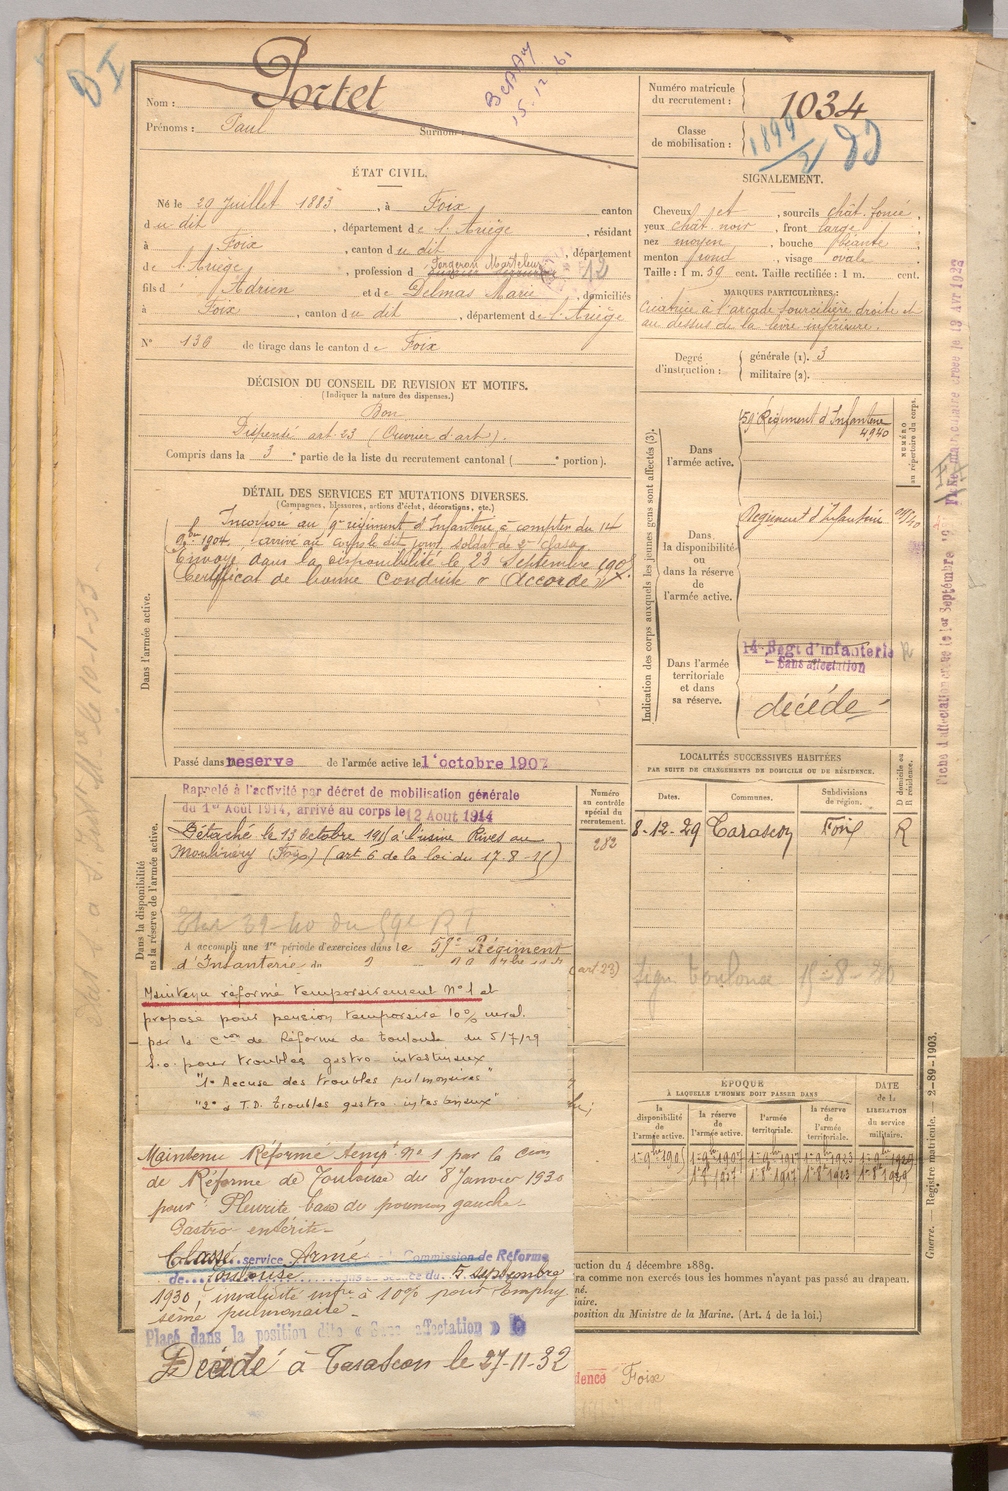 BI
Portet
Nom :
Prénoms : Paul
Surnom :
15.12.61
Numéro matricule
du recrutement : 1034
Classe
de mobilisation : 1899
ÉTAT CIVIL.
Né le 20 Juillet 1883, à Foix canton
du dit, département de l'Ariège, résidant
à Foix, canton du dit, département
de l'Ariège, profession d Forgeron Marteleur 12
fils d Adrien et de Delmas Marie, domiciliés
à Foix, canton du dit, département de l'Ariège
N° 130 de tirage dans le canton de Foix
SIGNALEMENT.
Cheveux et, sourcils chât. foncé,
yeux chât noir, front large
nez moyen, bouche béante
menton rond, visage ovale
Taille : 1 m. 59 cent. Taille rectifiée : 1 m. cent.
MARQUES PARTICULIÈRES :
Cicatrice à l'arcade sourcilière droite et
au dessus de la lèvre inférieure.
Degré
d'instruction :
générale (1). 3
militaire (2).
DÉCISION DU CONSEIL DE REVISION ET MOTIFS.
(Indiquer la nature des dispenses.)
Bon
Dispensé art. 23 (Ouvrier d'art).
Compris dans la 3e partie de la liste du recrutement cantonal ( e portion).
DÉTAIL DES SERVICES ET MUTATIONS DIVERSES.
(Campagnes, blessures, actions d'éclat, décorations, etc.)
Dans l'armée active.
Incorporé au 9e régiment d'Infanterie à compter du 14
9bre 1904, arrivé au corps le dit jour, soldat de 2e classe
Envoyé dans la disponibilité le 23 Septembre 1905
Certificat de bonne conduite "Accordé"
Passé dans reserve de l'armée active le 1er octobre 1907
Indication des corps auxquels les jeunes gens sont affectés (3).
Dans
l'armée active.
59e Régiment d'Infanterie
4940
NUMÉRO
au répertoire du corps.
Dans
la disponibilité
ou
dans la réserve
de
l'armée active.
Régiment d'Infanterie
Dans l'armée
territoriale
et dans
sa réserve.
14e Regt d'infanterie R
Sans affectation
décédé
LOCALITÉS SUCCESSIVES HABITÉES
PAR SUITE DE CHANGEMENTS DE DOMICILE OU DE RÉSIDENCE.
D domicile ou
R résidence.
Dates. Communes. Subdivisions
de région.
8-12-29 Tarascon Foix R
Sign Toulouse 15-8-30
Dans la disponibilité
ns la réserve de l'armée active.
Rappelé à l'activité par décret de mobilisation générale
du 1er Août 1914, arrivé au corps le 12 Aout 1914
Détaché le 13 octobre 1915 à l'usine Rives au
Moulinery (Foix) (art 6 de la loi du 17-8-15)
Etat 39-40 du 59e R I
A accompli une 1re période d'exercices dans le 59e Régiment
d'Infanterie du
Numéro
au contrôle
spécial du
recrutement.
282
(art 23)
Maintenu réformé temporairement N° 1 et
proposé pour pension temporaire 10% inval.
par la Con de Réforme de Toulouse du 5/7/29
S.o. pour troubles gastro-intestinaux
"1° Accuse des troubles pulmonaires"
"2° T.D. troubles gastro intestinaux"
Maintenu Réformé tempre No 1 par la Con
de Réforme de Toulouse du 8 Janvier 1930
pour : Pleurite base du poumon gauche.
Gastro entérite.
Classé service Armé Commission de Réforme
de Toulouse dans sa séance du 5 septembre
1930 : invalidité infre à 10% pour Emphy
sème pulmonaire.
Placé dans la position dite « Sans affectation » D
Décédé à Tarascon le 27-11-32
ÉPOQUE
À LAQUELLE L'HOMME DOIT PASSER DANS
DATE
de la
LIBÉRATION
du service
militaire.
la
disponibilité
de
l'armée active.
la réserve
de
l'armée active.
l'armée
territoriale.
la réserve
de
l'armée
territoriale.
ruction du 4 décembre 1889.
ra comme non exercés tous les hommes n'ayant pas passé au drapeau.
né.
iaire.
position du Ministre de la Marine. (Art. 4 de la loi.)
dence Foix
Guerre. Registre matricule. 2-89-1903.